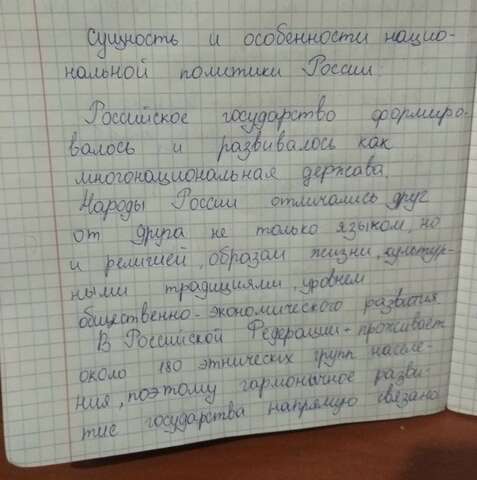 Сущность и особенности нацио-
нальной политики России.
Российское государство формиро-
валось и развивалось как
многонациональная держава.
Народы России отличались друг
от друга не только языком, но
и религией, образом жизни, культур-
ными традициями, уровнем
общественно-экономического развития
В Российской Федерации - проживает
около 180 этнических групп населе-
ния, поэтому гармоничное разви-
тие государства напрямую связано